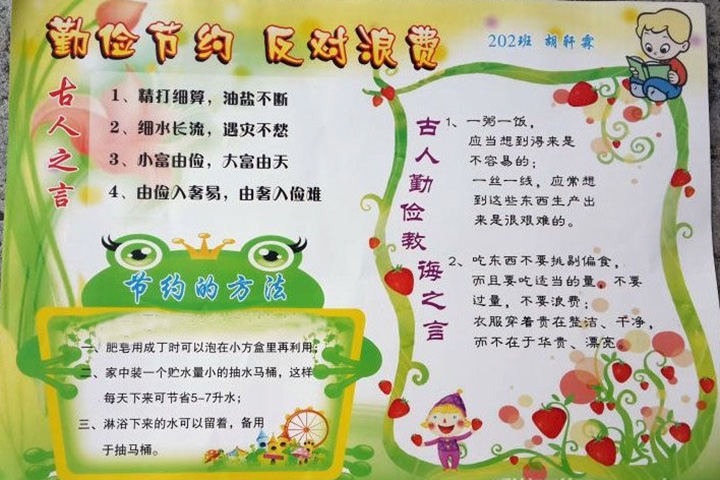 勤俭节约 反对浪费
202班 胡轩霖
古人之言
1、精打细算，油盐不断
2、细水长流，遇灾不愁
3、小富由俭，大富由天
4、由俭入奢易，由奢入俭难
节约的方法
一、肥皂用成丁时可以泡在小方盒里再利用；
二、家中装一个贮水量小的抽水马桶，这样
每天下来可节省5-7升水；
三、淋浴下来的水可以留着，备用
于抽马桶。
古人勤俭教诲之言
1、一粥一饭，
应当想到得来是
不容易的；
一丝一线，应常想
到这些东西生产出
来是很艰难的。
2、吃东西不要挑剔偏食，
而且要吃适当的量，不要
过量，不要浪费；
衣服穿着贵在整洁、干净，
而不在于华贵、漂亮。